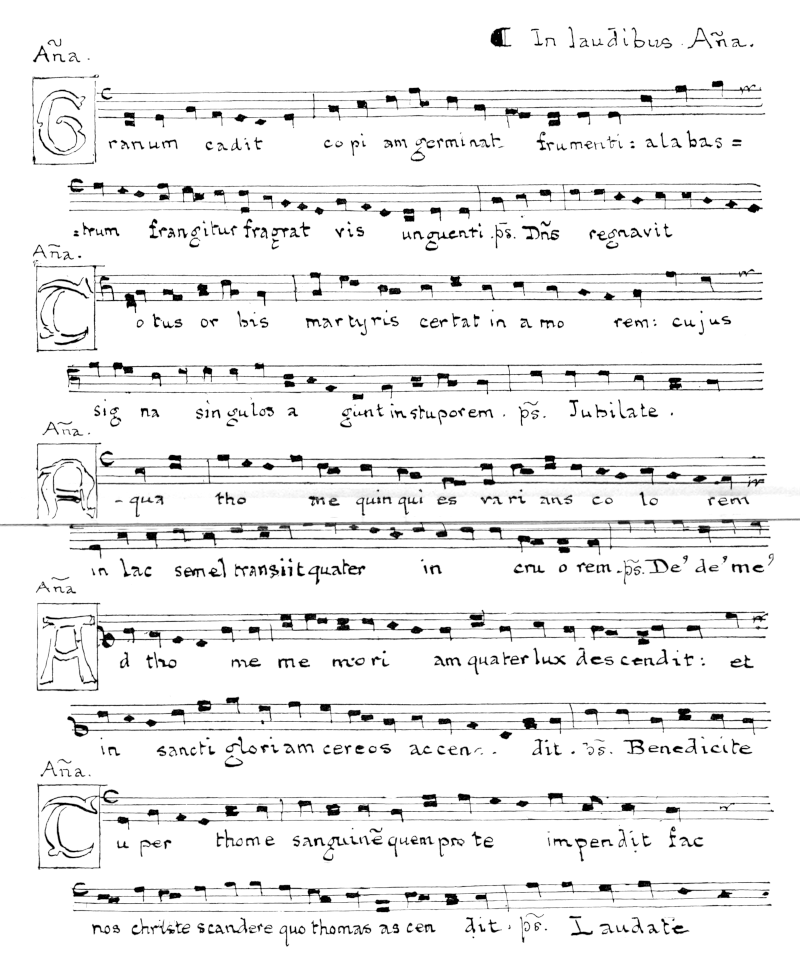 ¶ In laudibus. Aña.
Aña.
Granum cadit copiam germinat frumenti: alabas=
=trum frangitur fragrat vis unguenti. p̃s. Dñs regnavit
Aña.
Totus orbis martyris certat in amorem: cujus
signa singulos agunt in stuporem. p̃s. Jubilate.
Aña.
Aqua thome quinquies varians colorem
in lac semel transiit quater in cruorem. p̃s. De' de' me'
Aña
Ad thome memoriam quater lux descendit: et
in sancti gloriam cereos accen.. dit. p̃s. Benedicite
Aña.
Tu per thome sanguinẽ quem pro te impendit fac
nos christe scandere quo thomas ascendit. p̃s. Laudate